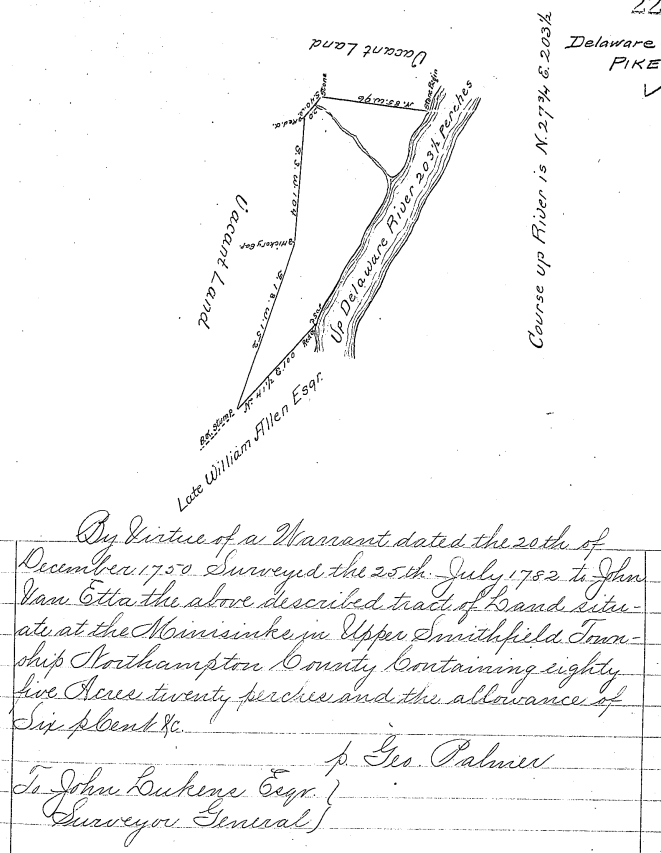 22
Delaware
PIKE
Vacant Land
Stone
N. 85. W. 96
Stone Begin
S. 40. E.
20
Red. o.
S. 3. W. 104
Hickory Sap.
Vacant Land
S. 18. W. 152
Up Delaware River 203½ perches
N. 41½ E. 100
Bk. Stump
Late William Allen Esqr.
Course up River is N. 27¾ E. 203½
By Virtue of a Warrant dated the 20th of
December 1750 Surveyed the 25th. July 1782 to John
Van Etta the above described tract of Land situ-
ate at the Minisinks in Upper Smithfield Town-
ship Northampton County Containing eighty
five Acres twenty perches and the allowance of
Six p Cent &c.
p. Geo. Palmer
To John Lukens Esqr. }
Surveyor General }